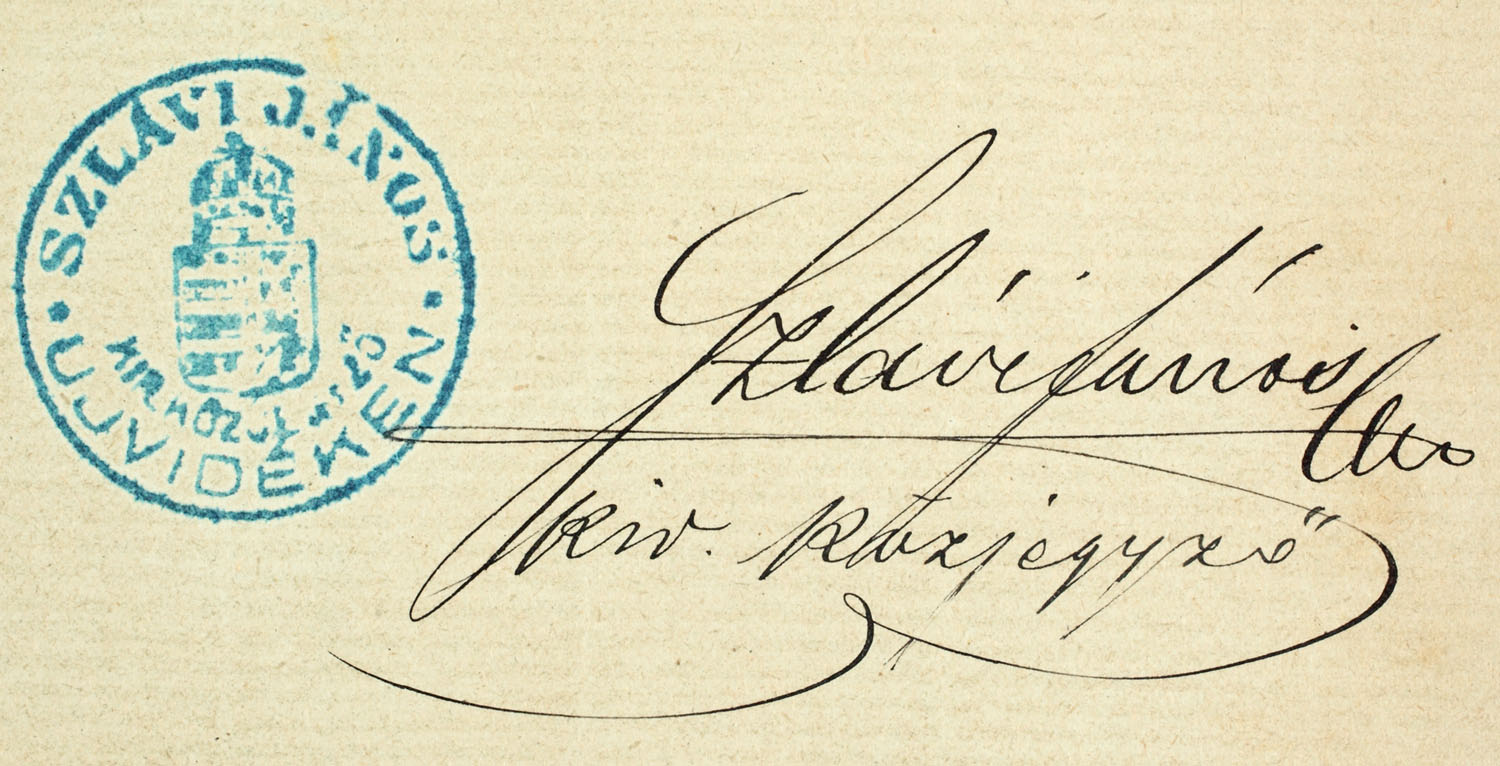 SZLÁVI JÁNOS
KIR. KÖZJEGYZŐ
UJVIDÉKEN
Szlávi János
kir. közjegyző